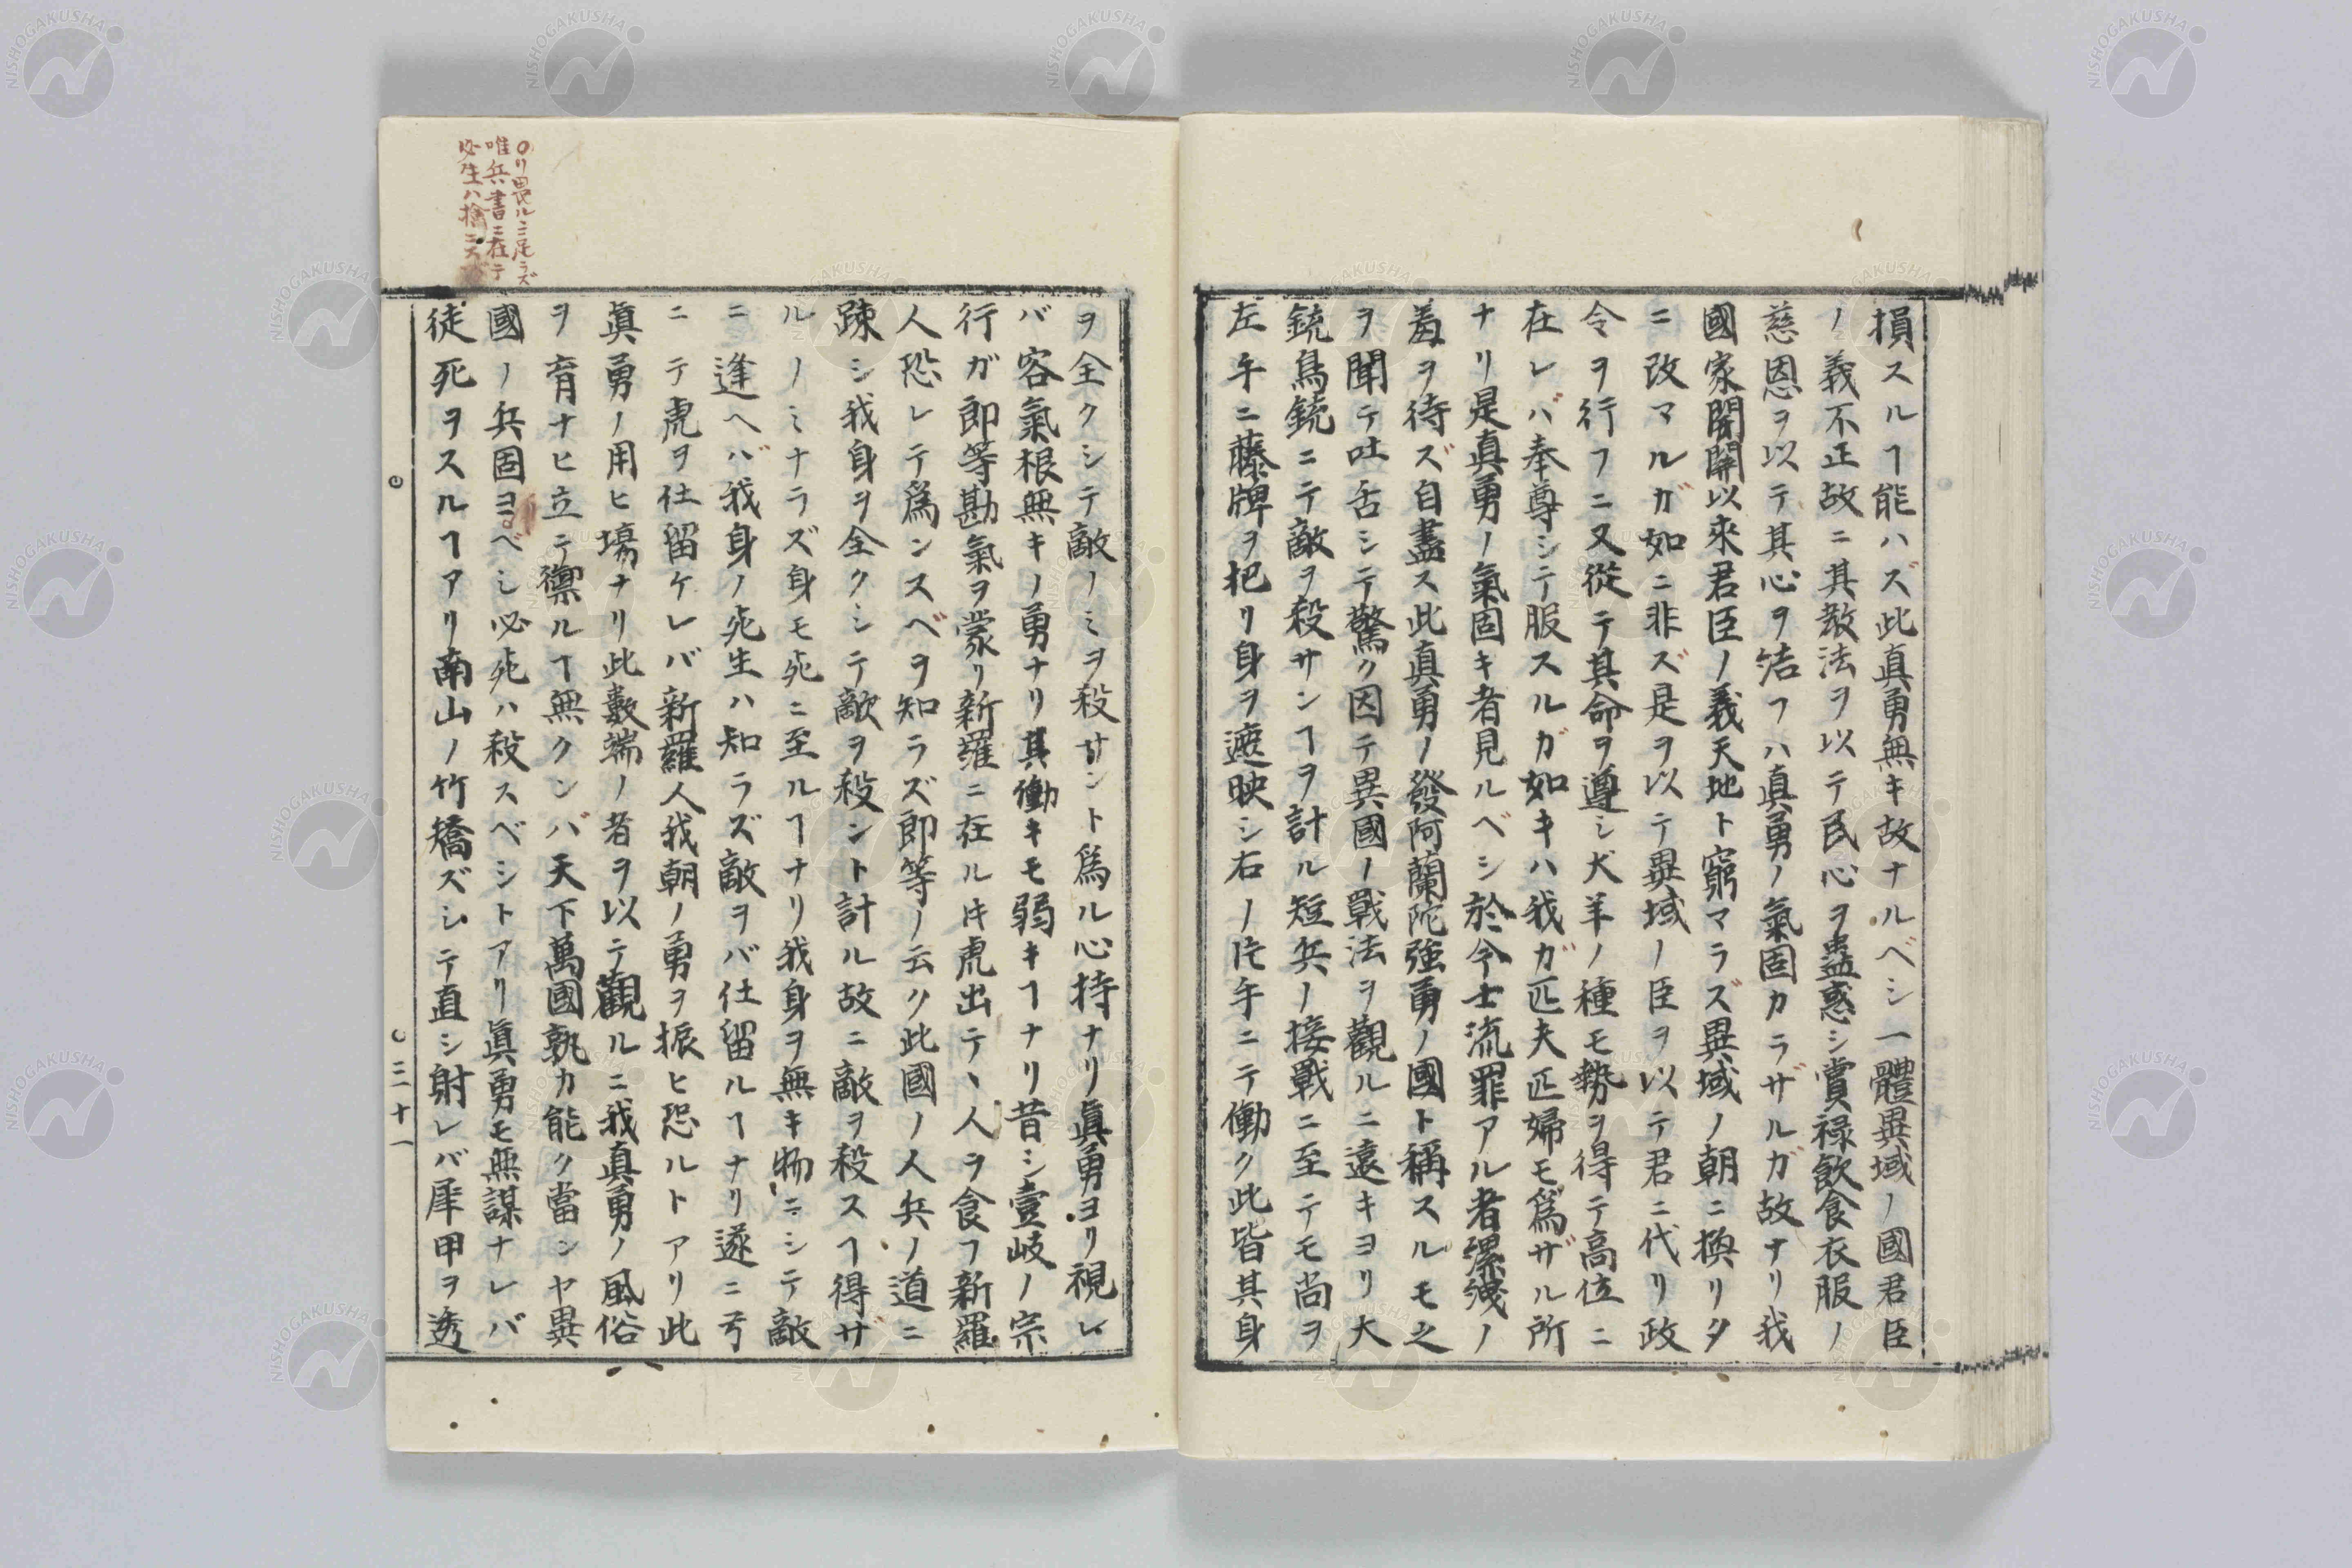 損スルヿ能ハズ此真勇無キ故ナルベシ一體異域ノ國君臣
ノ義不正故ニ其教法ヲ以テ民心ヲ蠱惑シ賞禄飲食衣服ノ
慈恩ヲ以テ其心ヲ結フハ真勇ノ氣固カラザルガ故ナリ我
國家開闢以來君臣ノ義天地ト窮マラズ異域ノ朝ニ換リタ
ニ改マルガ如ニ非ズ是ヲ以テ異域ノ臣ヲ以テ君ニ代リ政
令ヲ行フニ又從テ其命ヲ遵シ犬羊ノ種モ勢ヲ得テ高位ニ
在レバ奉尊シテ服スルガ如キハ我ガ匹夫匹婦モ爲ザル所
ナリ是真勇ノ氣固キ者見ルベシ於今士流罪アル者縲絏ノ
羞ヲ待ズ自盡ス此真勇ノ發阿蘭陀強勇ノ國ト稱スルモ之
ヲ聞テ吐舌シテ驚ク因テ異國ノ戰法ヲ觀ルニ遠キヨリ大
銃鳥銃ニテ敵ヲ殺サンヿヲ計ル短兵ノ接戰ニ至テモ尚ヲ
左手ニ藤牌ヲ把リ身ヲ遮映シ右ノ片手ニテ働ク此皆其身
ヲ全クシテ敵ノミヲ殺サント爲ル心持ナリ眞勇ヨリ視レ
バ容氣根無キノ勇ナリ其働キモ弱キヿナリ昔シ壹岐ノ宗
行ガ即等勘氣ヲ蒙リ新羅ニ在ル𪜈虎出テヽ人ヲ食フ新羅
人恐レテ爲ンスベヲ知ラズ即等ノ云ク此國ノ人兵ノ道ニ
踈シ我身ヲ全クシテ敵ヲ殺ント計ル故ニ敵ヲ殺スヿ得ザ
ルノミナラズ身モ死ニ至ルヿナリ我身ヲ無キ物ニシテ敵
ニ逢ヘバ我身ノ死生ハ知ラズ敵ヲバ仕留ルヿナリ遂ニ弓
ニテ虎ヲ仕留ケレバ新羅人我朝ノ勇ヲ振ヒ恐ルトアリ此
眞勇ノ用ヒ場ナリ此數端ノ者ヲ以テ觀ルニ我真勇ノ風俗
ヲ育ナヒ立テ禦ルヿ無クンバ天下萬國孰カ能ク當ンヤ異
國ノ兵固ヨベシ必死ハ殺スベシトアリ眞勇モ無謀ナレバ
徒死ヲスルヿアリ南山ノ竹矯ズシテ直シ射レバ犀甲ヲ透
三十一
○リ畏ルニ足ラズ
唯兵書ニ在テ
必生ハ擒ニス